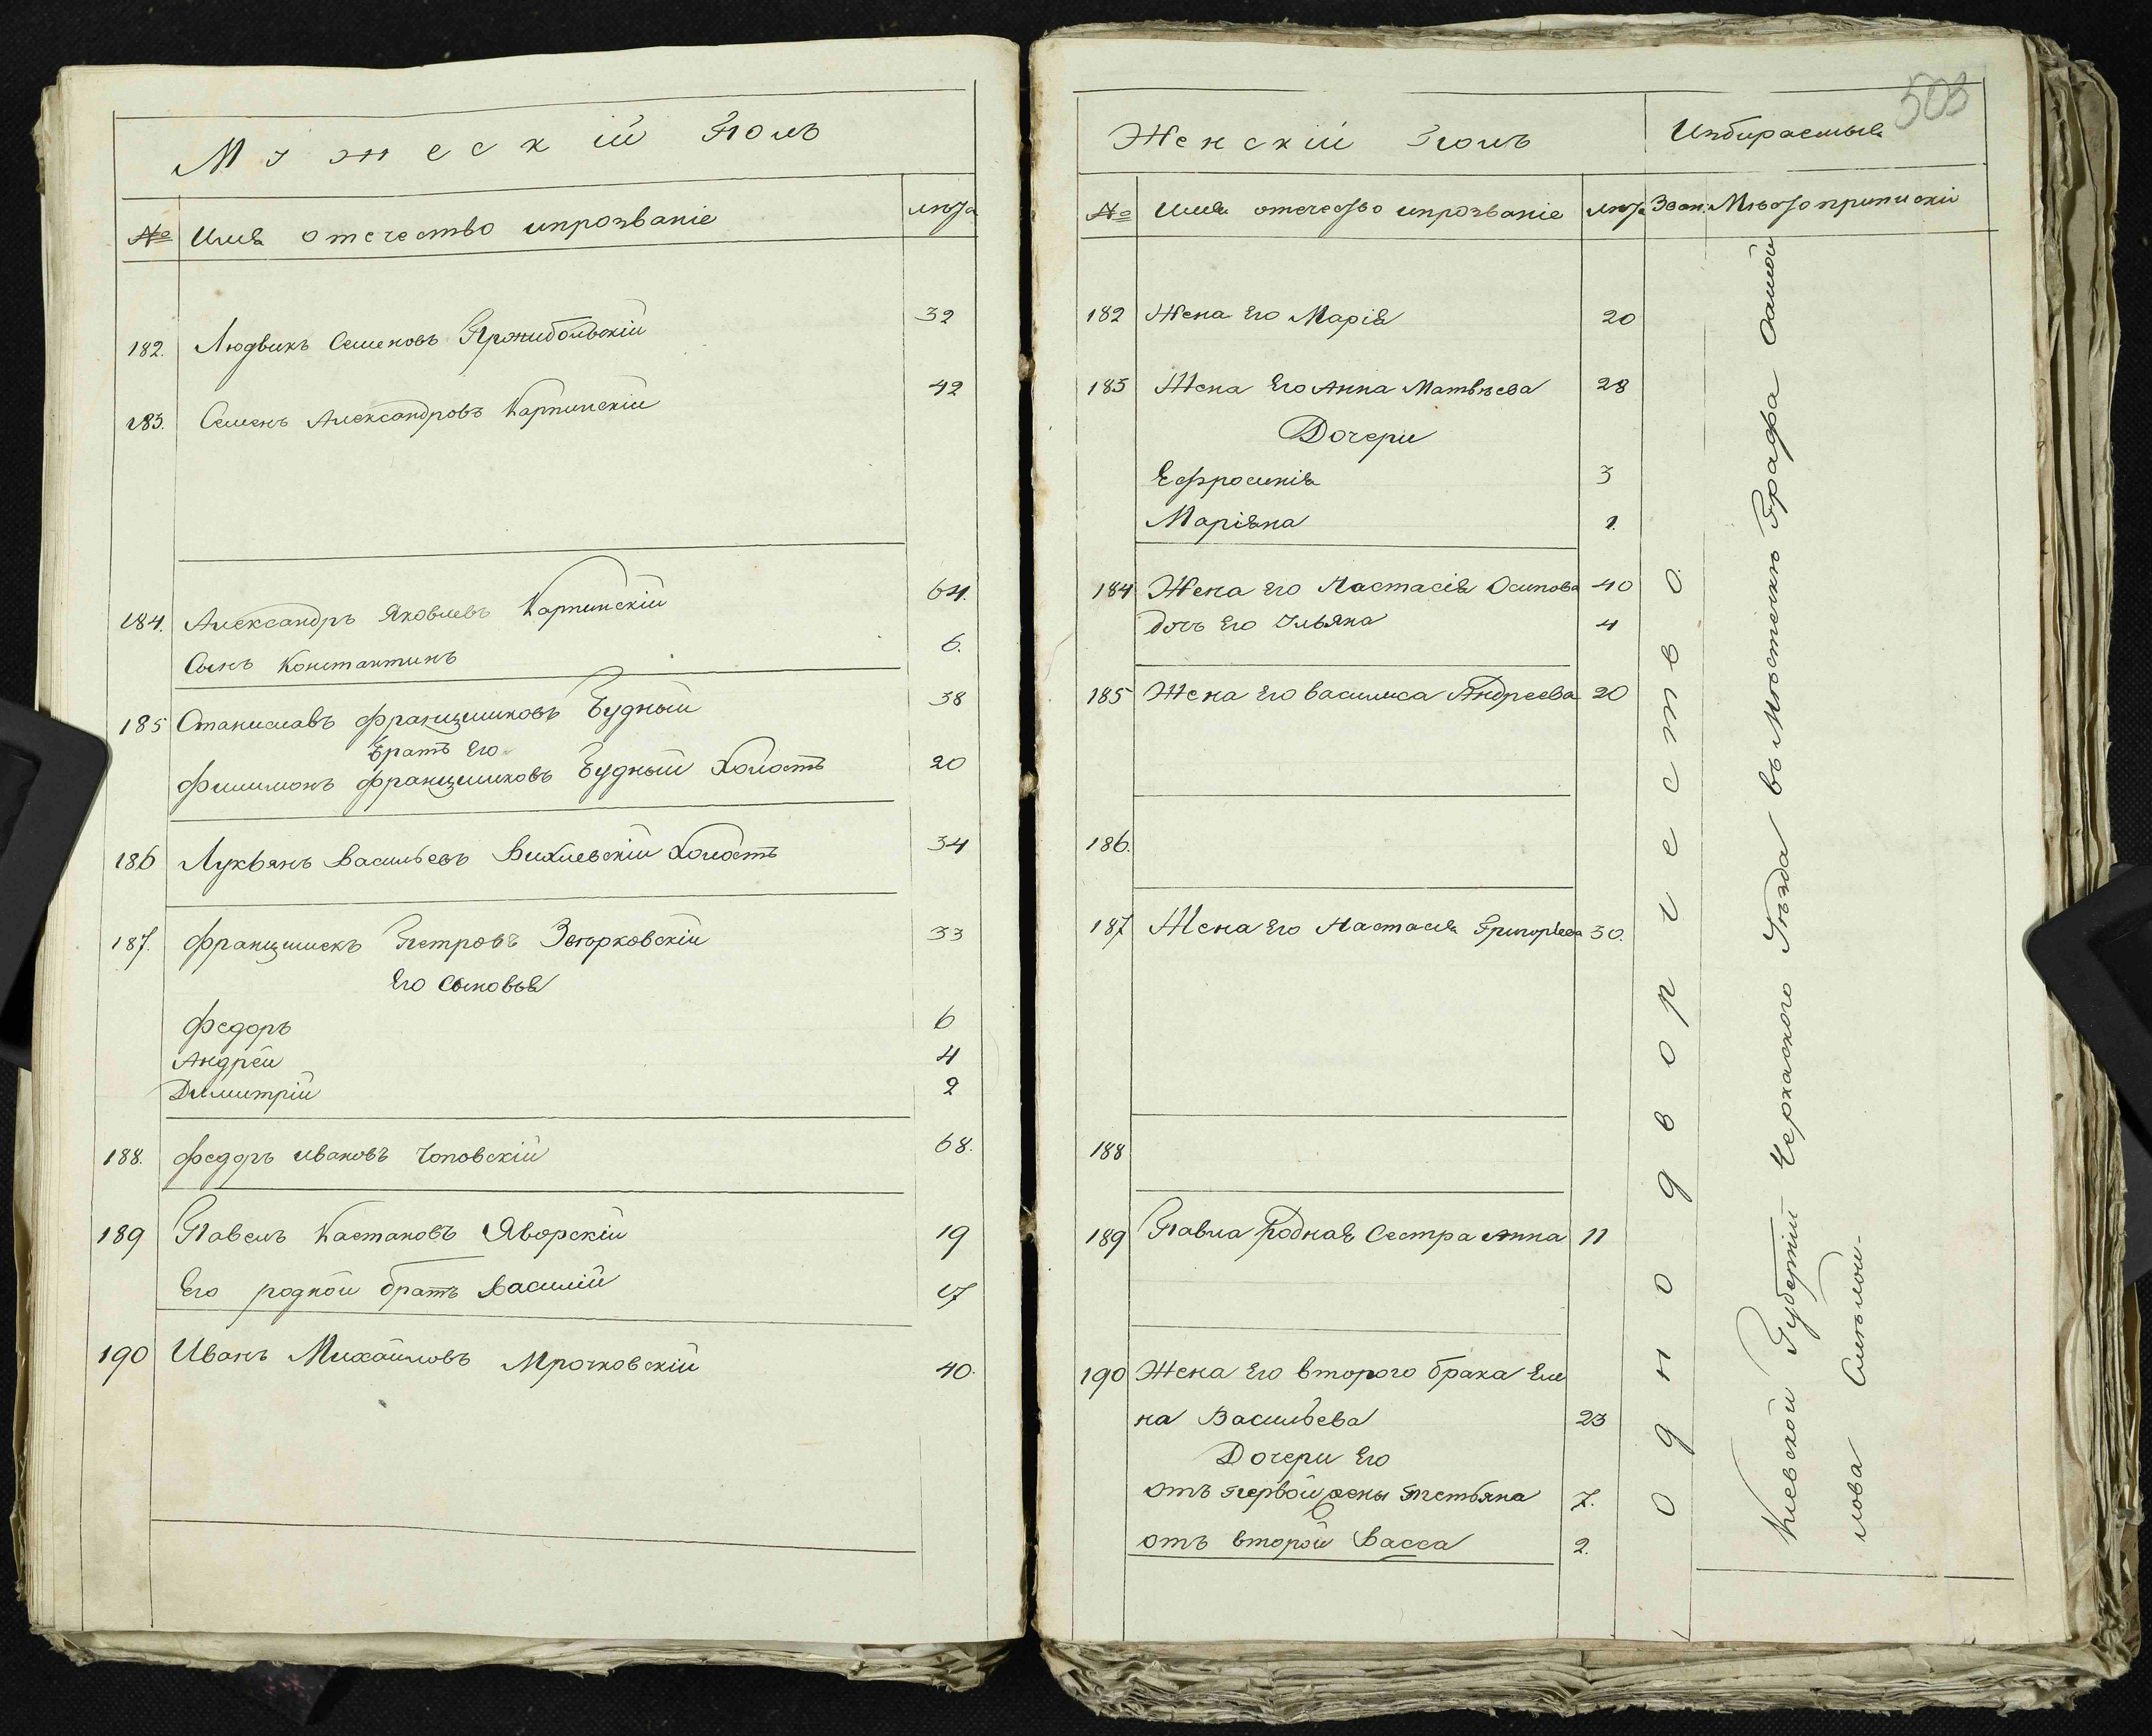 Мужескій Полъ
№ Имя отечество ипрозваніе лѣта
182. Людвикъ Семеновъ 32
183. Семенъ Александровъ Карпинскій 42
184. Александръ Яковлевъ Карпинскій 64.
Сынъ Константинъ 6.
185 Станиславъ Францишковъ Будный 38
Братъ Его
Филимонъ Францишковъ Будный Холостъ 20
186 Лукьянъ Васильевъ Холостъ 34
187. Францишекъ Петровъ 33
Его Сыновья
Федоръ 6
Андрей 4
Димитрій 2
188. Федоръ Ивановъ Чоповскій 68.
189 Павелъ Каетановъ Яворскій 19
Его родной братъ Василій 17
190 Иванъ Михайловъ Мрочковскій 40.
503
Женскій Полъ
№ Имя отечество ипрозваніе лѣта Зван. Мѣсто приписки
182 Жена Его Марія 20
183 Жена Его Анна Матвѣева 28
Дочери
Ефросинія 3
Маріяна 1.
184 Жена Его Настасія Осипова 40
дочь Его Ульяна 4
185 Жена Его Василиса Андреева 20
186.
187 Жена Его Настасія Григорьева 30.
188
189 Павла родная Сестра Анна 11
190 Жена Его второго брака Еле
на Васильева 23
Дочери Его
отъ первой жены Тетьяна 7.
отъ второй Васса 2.
однодворчество.
Киевской Губерніи Черкаского Уѣзда въ Мѣстечкѣ Графа Самой
лова Смѣлой.